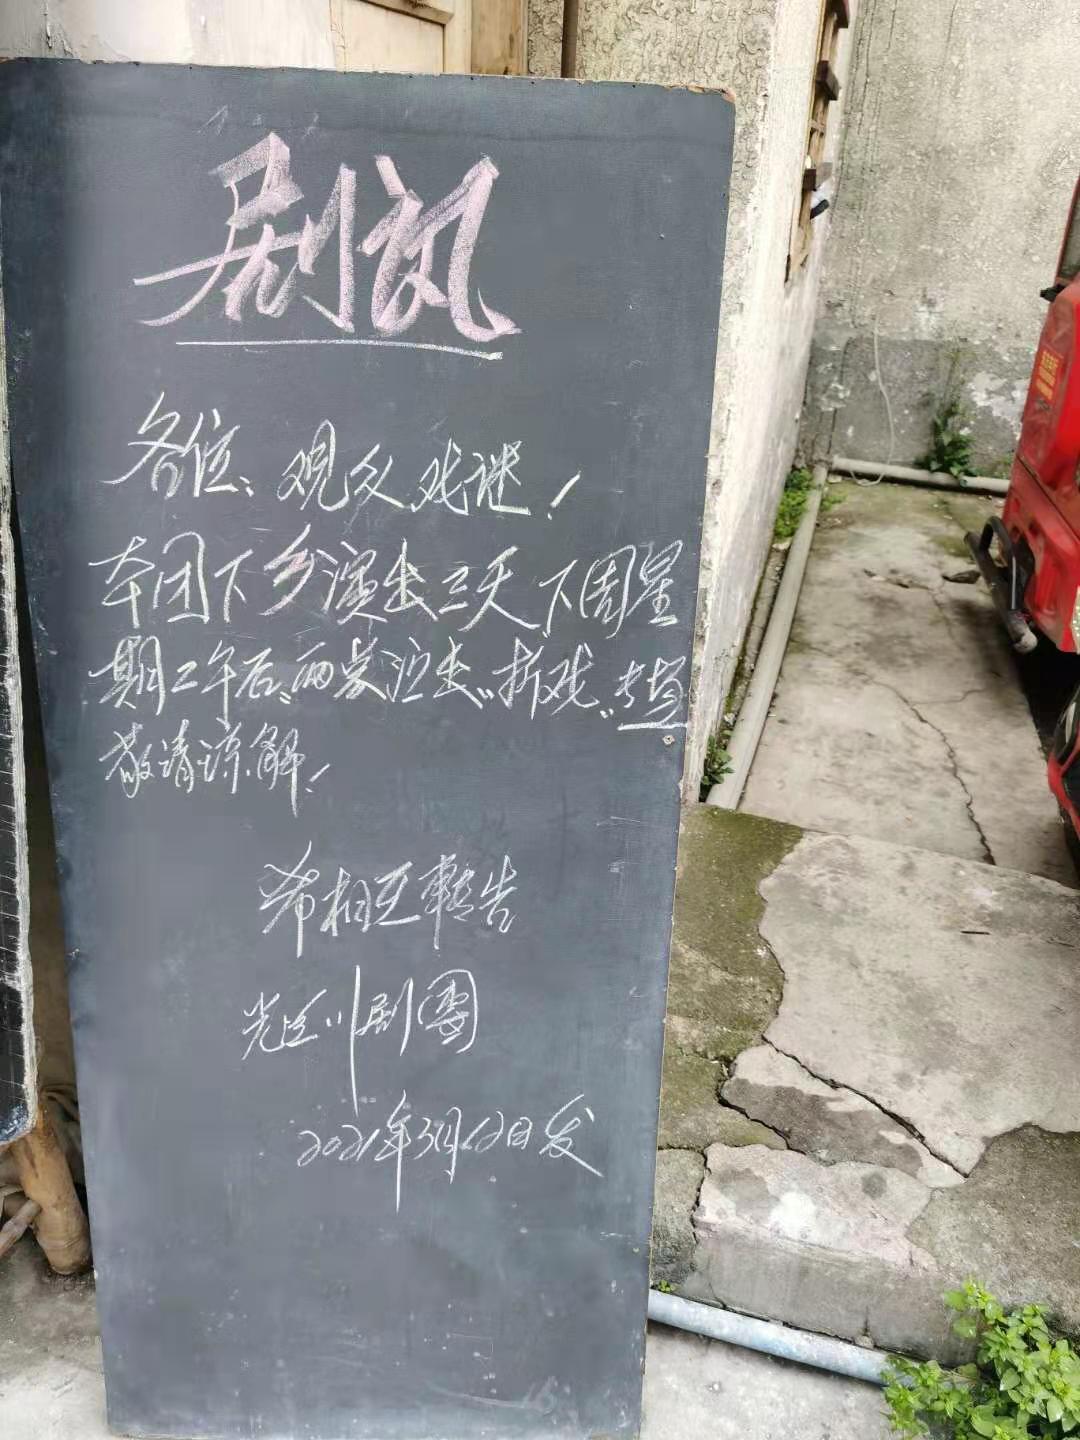 剧讯
各位、观众戏谜！
本团下乡演出三天下周星
期二午后"两岁演出"折戏"专场
敬请谅解！
希相互轉告
川剧團
2021年3月12日发